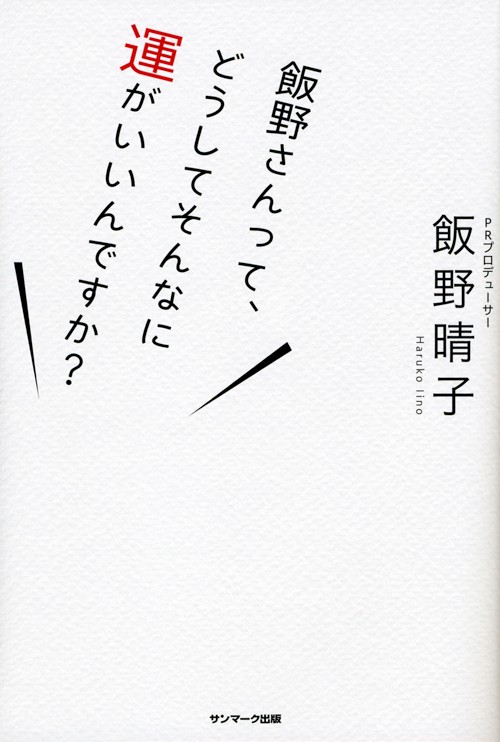 飯野さんって、
どうしてそんなに
運がいいんですか?
PRプロデューサー
飯野晴子
Haruko Iino
サンマーク出版